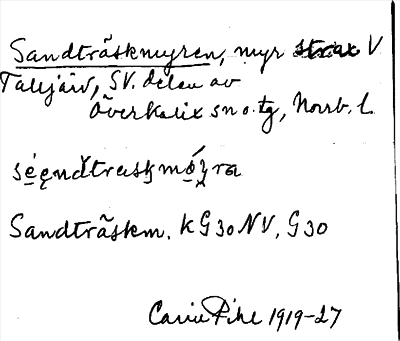 Sandträskmyren, myr strax V
Talljärv, SV. delen av
Överkalix sn o. tg, Norrb. l.
Sandträskm. KG30NV, G30
Carin Pihl 1919-27